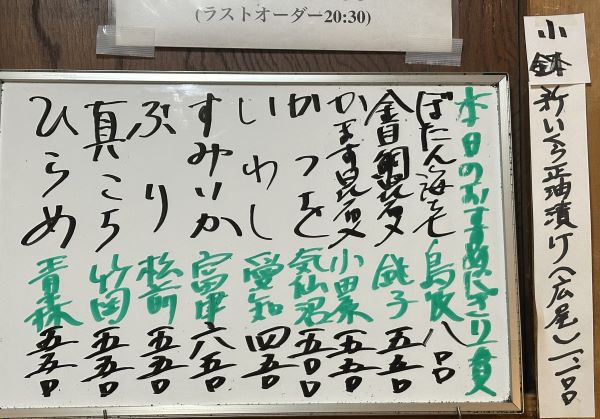 (ラストオーダー20:30)
小鉢 新いくら正油漬け(広尾)
本日のおすすめにぎり一貫
ぼたん海老 鳥取 八〇〇
金目鯛昆〆 銚子 五五〇
かます昆〆 小田原 五五〇
かつを 気仙沼
いわし 愛知 四五〇
すみいか 富津 六五〇
ぶり 松前 五五〇
真こち 竹岡 五五〇
ひらめ 青森 五五〇